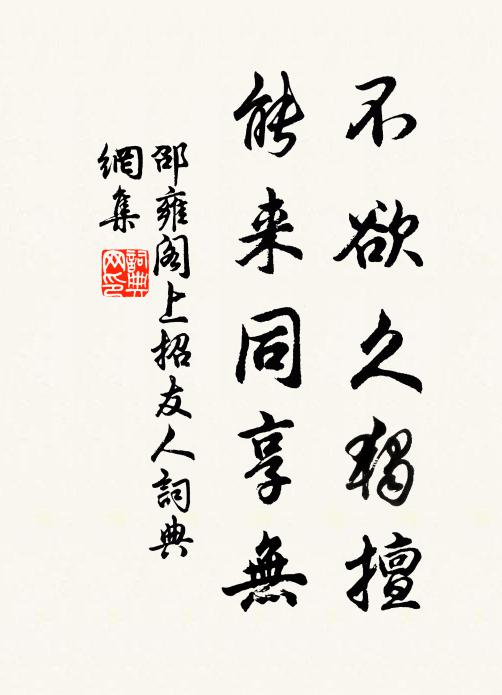 不欲久獨擅
能来同享無
邵雍閣上招友人詞典
網集
詞典网印